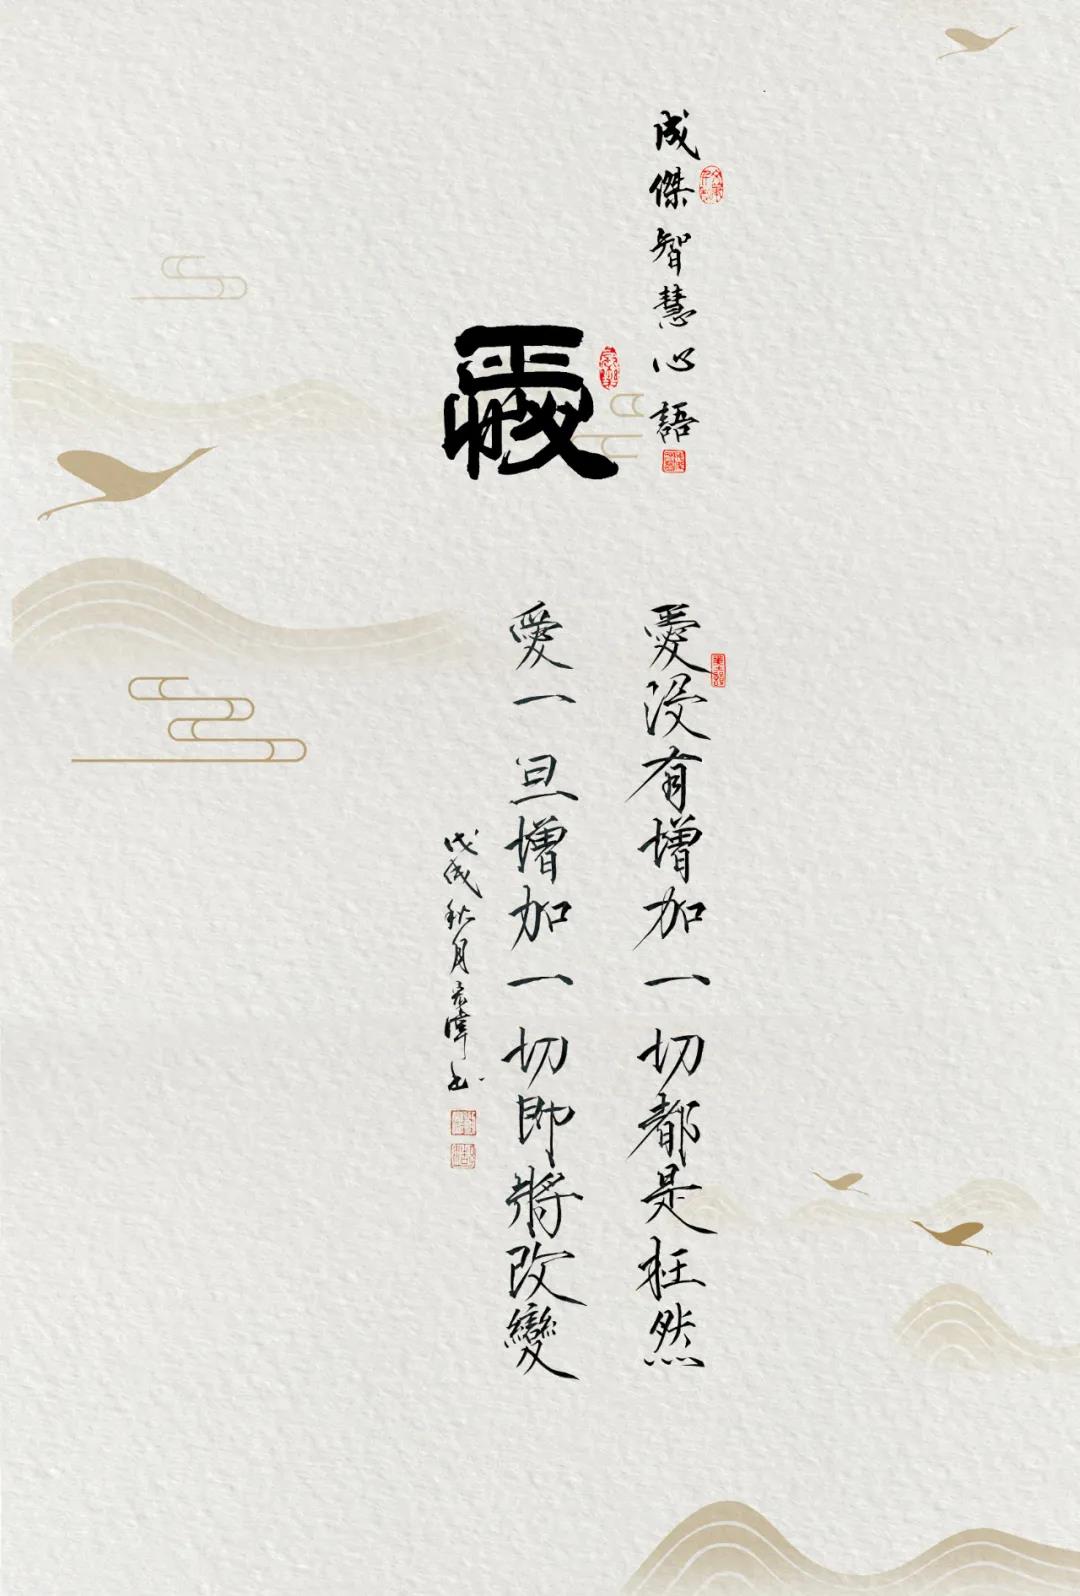 成傑智慧心語
愛
愛沒有增加一切都是枉然
愛一旦增加一切即將改變
戊戌秋月